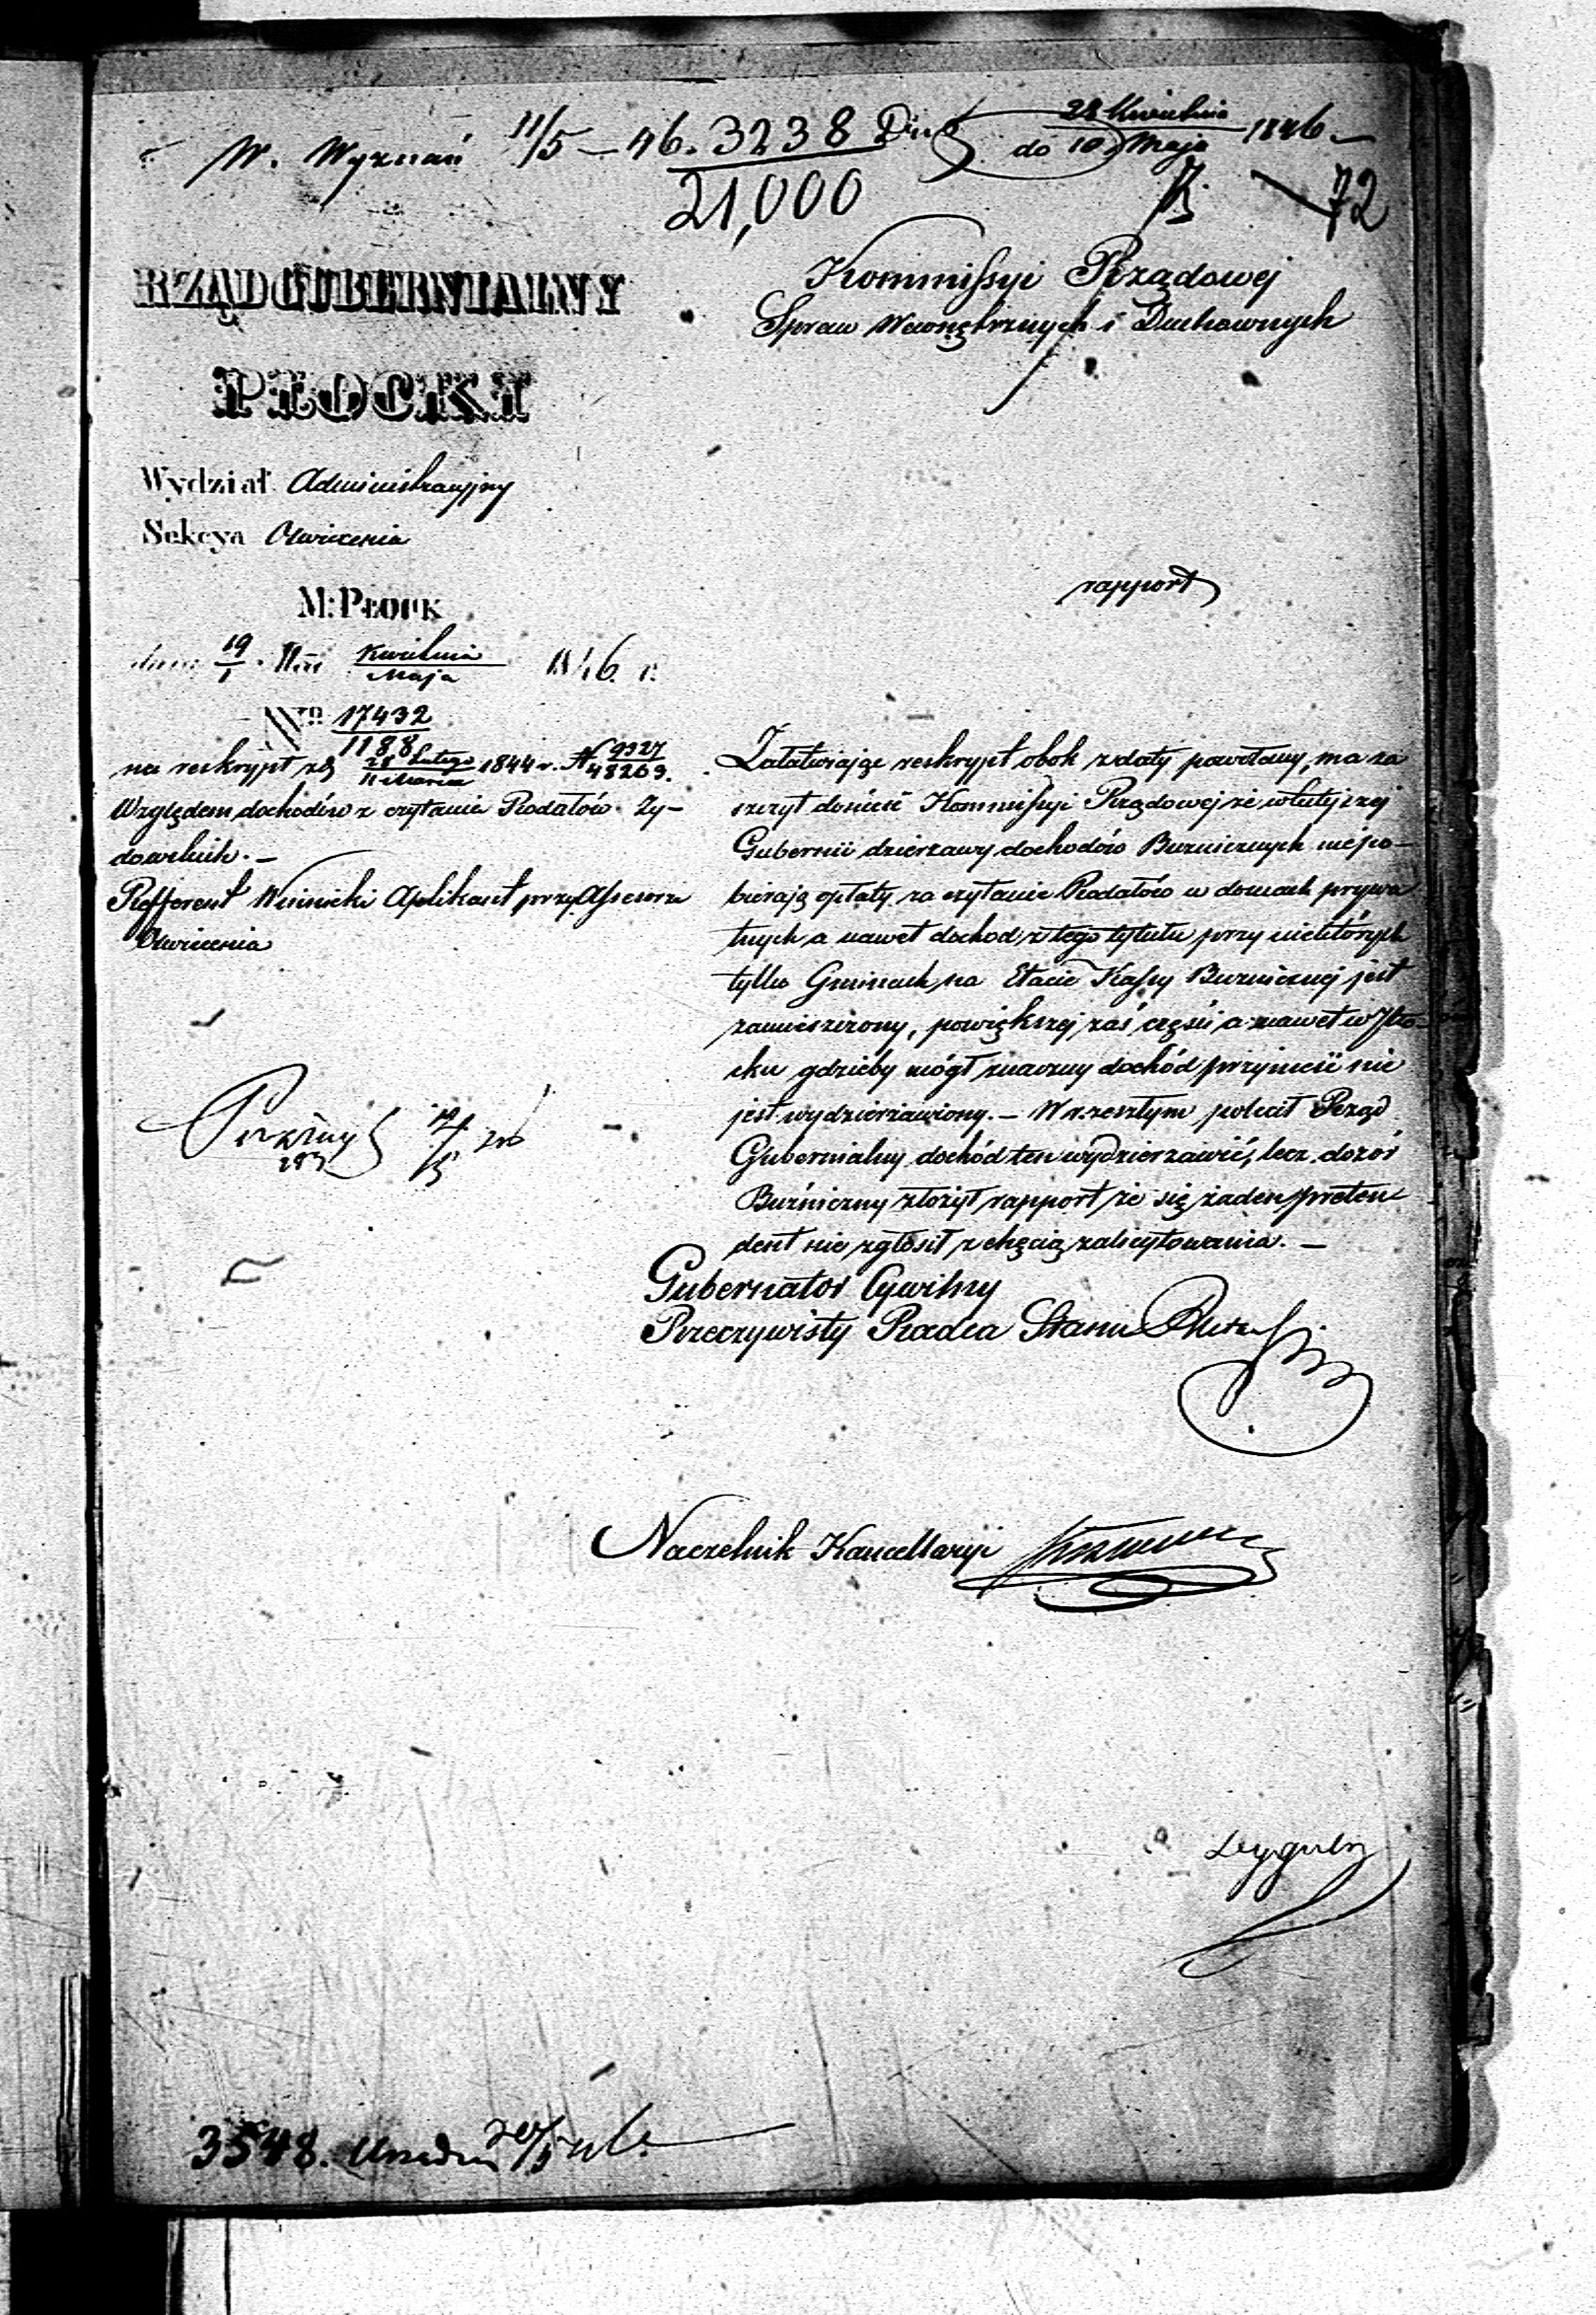 W. Wyznań 11/5 – 46. 3238 Dnia 28 Kwietnia
do 10 Maja 1846 –
21,000
72
RZĄD GUBERNIALNY
PŁOCKI
Kommissyi Rządowej
Spraw Wewnętrznych i Duchownych
Wydział Administracyjny
Sekcya Oświecenia
rapport
M: PŁOCK
dnia 19/1 Mca Kwietnia/Maja 1846. r.
Nro 17432/1188
na reskrypt z d 28 Lutego/11 Marca 1844 r. N 9327/48263.
Względem dochodów z czytania Rodałów Ży-
dowskich. –
Refferent Winnicki Aplikant przy Assesorze
Oświecenia
Załatwiając reskrypt obok z daty powołany, ma za
szczyt donieść Kommissyi Rządowej że w tutejszej
Gubernii dzierżawy dochodów Bużnicznych nie po-
bierają opłaty za czytanie Rodałów w domach prywa
tnych a nawet dochod z tego tytułu przy niektórych
tylko Gminach na Etacie Kassy Bużnicznej jest
zamieszczony, powiększej zaś części a nawet w Pło-
cku gdzieby mógł znaczny dochód przynieść nie
jest wydzierżawiony. – W r. zeszłym polecił Rząd
Gubernialny dochód ten wydzierżawić, lecz dozór
Bużniczny złożył rapport że się żaden preten-
dent nie zgłosił z chęcią zalicytowania. –
Gubernator Cywilny
Rzeczywisty Radca Stanu
Naczelnik Kancellaryi
3548.